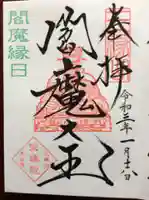 奉拝
令和三年一月十六日
閻魔大王
閻魔縁日